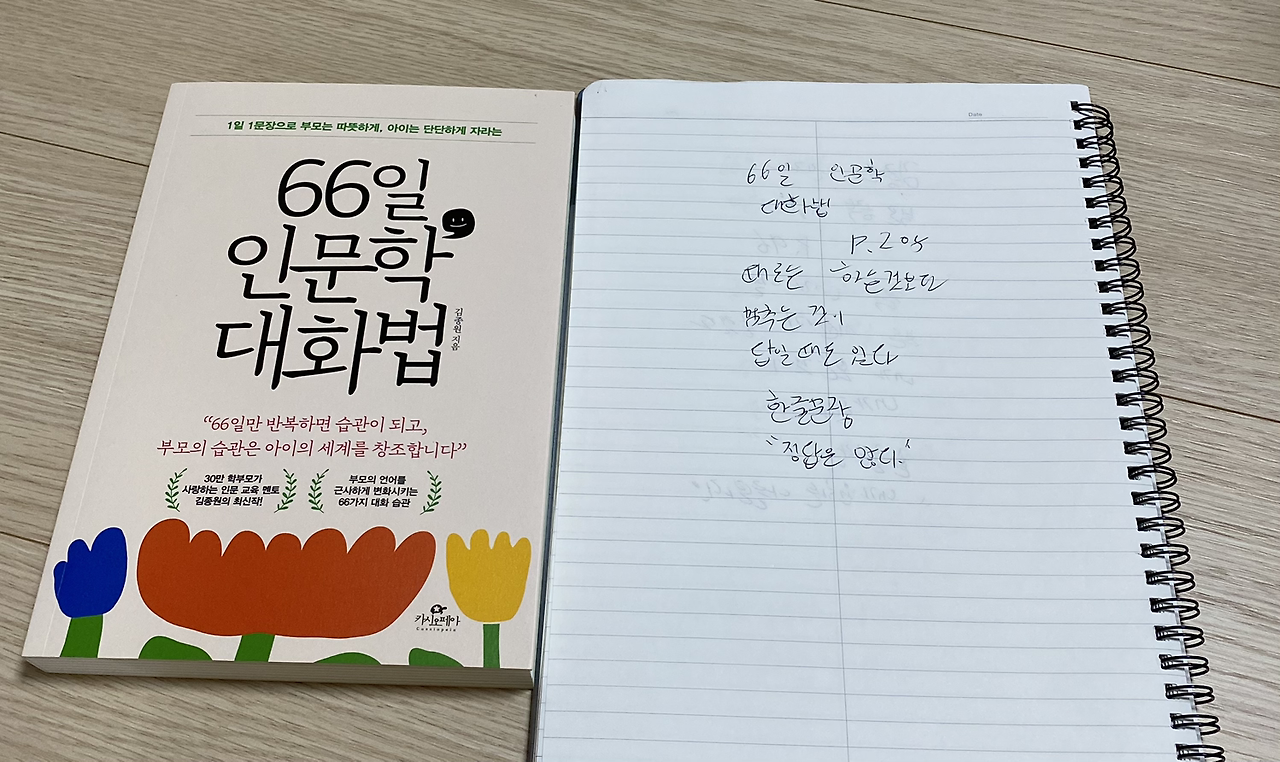 1일 1문장으로 부모는 따뜻하게, 아이는 단단하게 자라는
66일
인문학
대화법
김종원 지음
“66일만 반복하면 습관이 되고,
부모의 습관은 아이의 세계를 창조합니다”
30만 학부모가
사랑하는 인문 교육 멘토
김종원의 최신작!
부모의 언어를
근사하게 변화시키는
66가지 대화 습관
카시오페아
Cassiopeia
Date
66일 인문학
대화법
때로는 하는것보단
멈추는 것이
답일 때도 있다
한글문장
"정답은 없다."